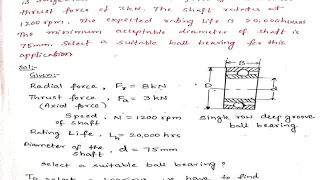 is subjected to
thrust force of 3kN. The shaft rotates at
1200 rpm. The expected rating life is 20,000hours
The minimum acceptable diameter of shaft is
75mm. Select a suitable ball bearing for
this application
Sol:-
Given:-
Radial force, Fr = 8kN
Thrust force, Fa = 3kN
(Axial force)
B
D
d
Speed of shaft, N = 1200 rpm
Single row deep groove
ball bearing
Rating Life, Lh = 20,000 hrs
Diameter of the shaft, d = 75mm
Select a suitable ball bearing?
To select a bearing, we have to find